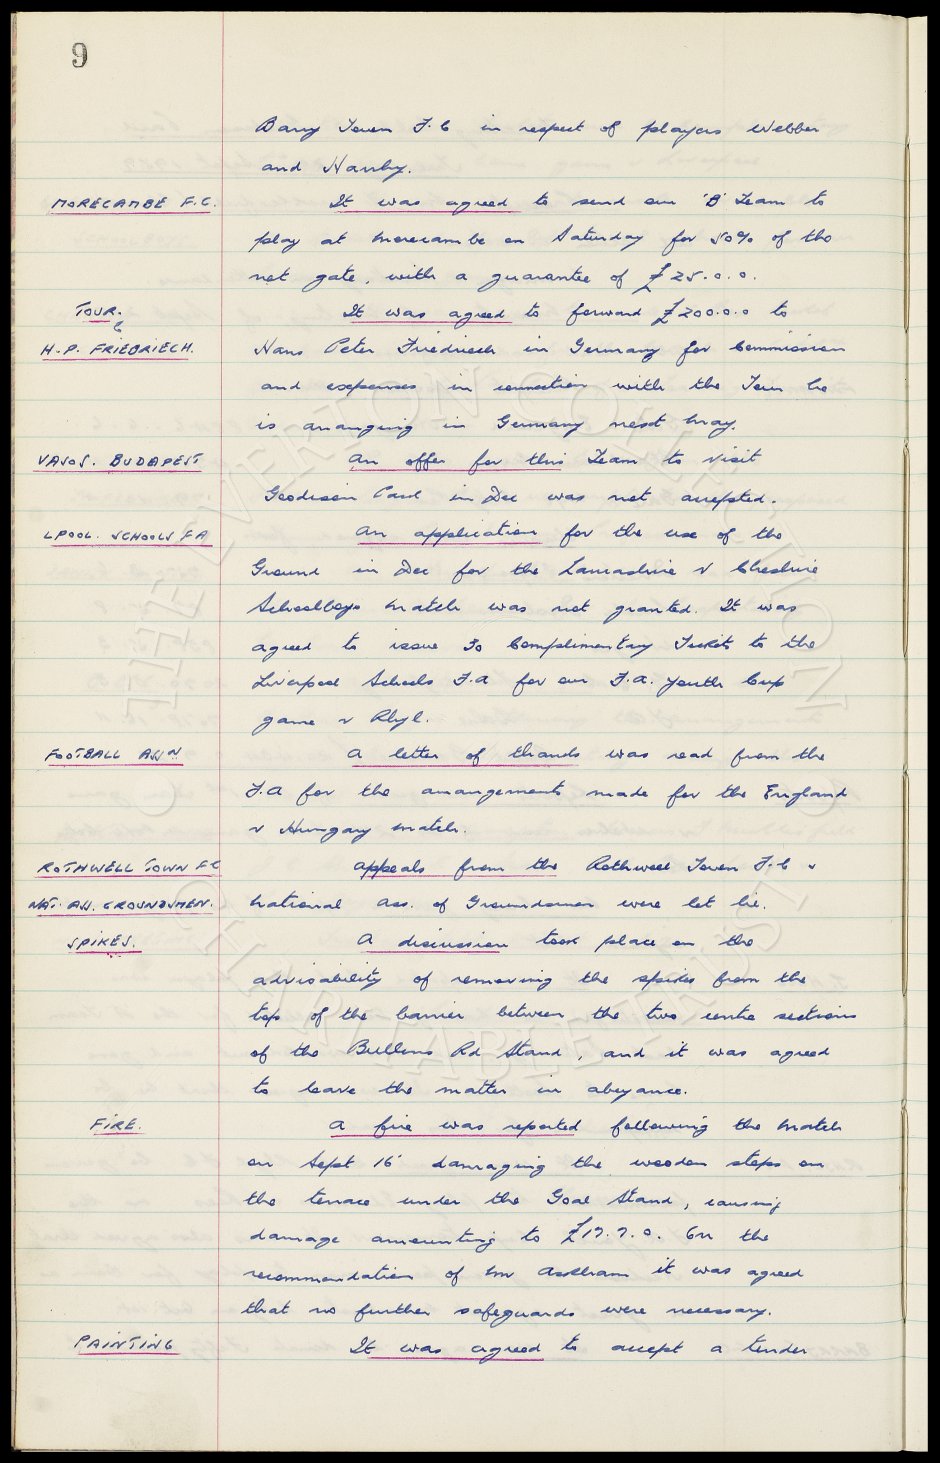 9
Barry Town F.C in respect of players Webber
and Hanby.
MORECAMBE F.C. It was agreed to send our 'B' Team to
play at Morecambe on Saturday for 50% of the
net gate, with a guarantee of £25.0.0.
TOUR. It was agreed to forward £200.0.0 to
&
H.P. FRIEDRIECH. Hans Peter Friedriech in Germany for Commission
and expenses in connection with the Tour he
is arranging in Germany next May.
VASOS. BUDAPEST An offer for this Team to visit
Goodison Park in Dec was not accepted.
LPOOL. SCHOOLS FA An application for the use of the
Ground in Dec for the Lancashire v Cheshire
Schoolboys match was not granted. It was
agreed to issue 30 Complimentary Tickets to the
Liverpool Schools F.A for our F.A. Youth Cup
game v Rhyl.
FOOTBALL ASSN A letter of thanks was read from the
F.A for the arrangements made for the England
v Hungary match.
ROTHWELL TOWN FC Appeals from the Rothwell Town F.C &
NAT. ASS. GROUNDSMEN. National Ass. of Groundsmen were let lie.
SPIKES. A discussion took place on the
advisability of removing the spikes from the
top of the barrier between the two centre sections
of the Bullens Rd Stand, and it was agreed
to leave the matter in abeyance.
FIRE. A fire was reported following the match
on Sept 16 damaging the wooden steps on
the terrace under the Goal Stand, causing
damage amounting to £17.7.0. On the
recommendation of Mr Askham it was agreed
that no further safeguards were necessary.
PAINTING It was agreed to accept a tender
THE EVERTON COLLECTION
CHARITABLE TRUST